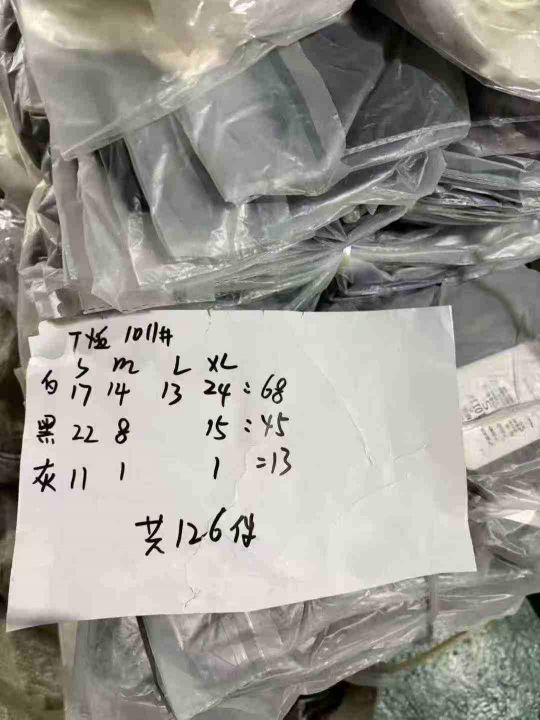 T恤 1011#
S m L XL
白 17 14 13 24 : 68
黑 22 8 15 : 45
灰 11 1 1 =13
共126件